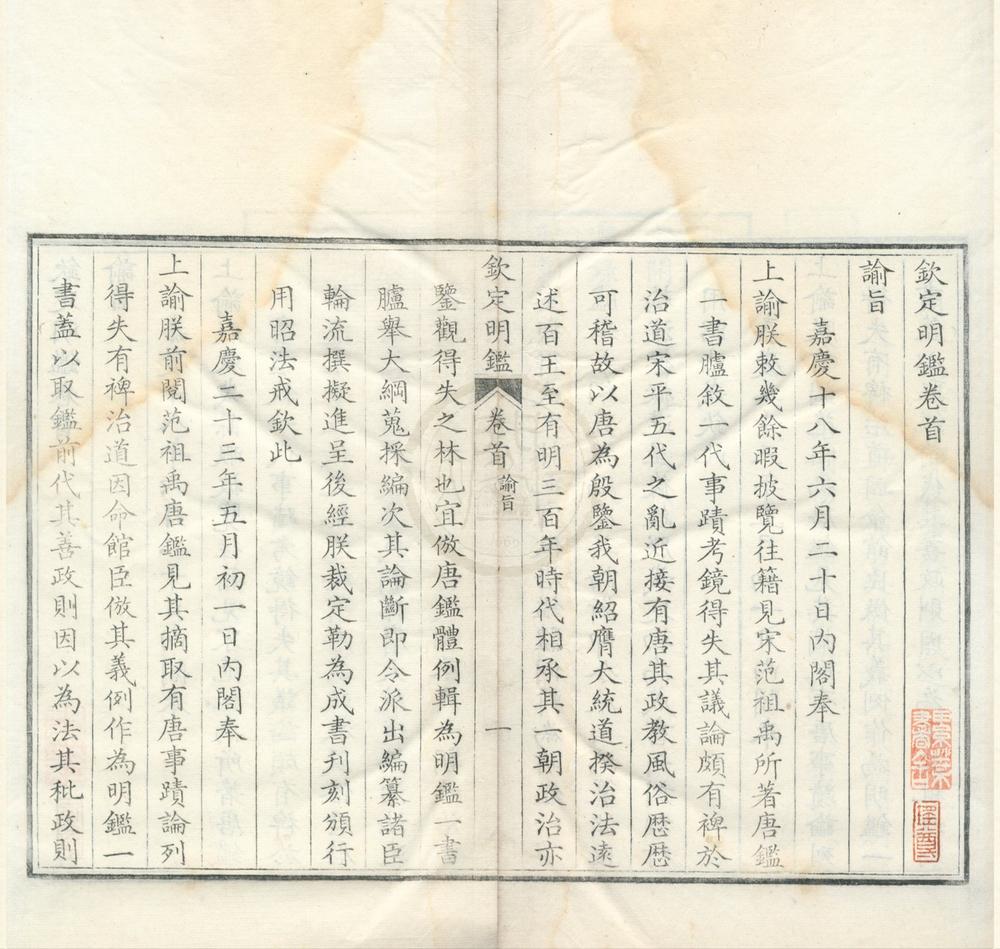 欽定明鑑卷首
諭旨
嘉慶十八年六月二十日內閣奉
上諭朕敕幾餘暇披覽往籍見宋范祖禹所著唐鑑
一書臚敘一代事蹟考鏡得失其議論頗有裨於
治道宋平五代之亂近接有唐其政教風俗歷歷
可稽故以唐為殷鑒我朝紹膺大統道揆治法遠
述百王至有明三百年時代相承其一朝政治亦
欽定明鑑 卷首 諭旨 一
鑒觀得失之林也宜倣唐鑑體例輯為明鑑一書
臚舉大綱蒐採編次其論斷即令派出編纂諸臣
輪流撰擬進呈後經朕裁定勒為成書刊刻頒行
用昭法戒欽此
嘉慶二十三年五月初一日內閣奉
上諭朕前閱范祖禹唐鑑見其摘取有唐事蹟論列
得失有裨治道因命館臣倣其義例作為明鑑一
書蓋以取鑑前代其善政則因以為法其秕政則